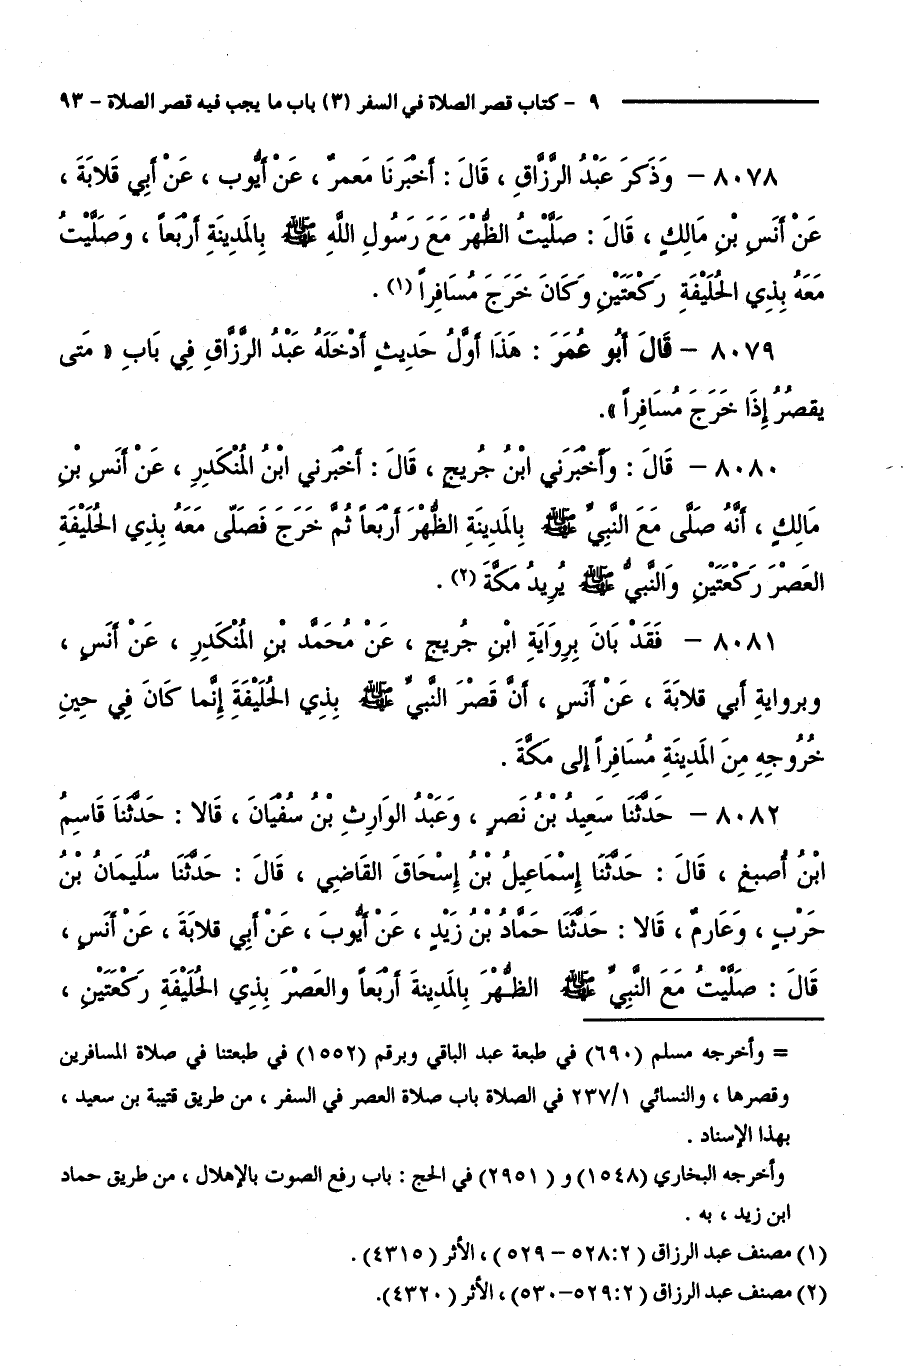 ٩ - كتاب قصر الصلاة في السفر (٣) باب ما يجب فيه قصر الصلاة - ٩٣
٨٠٧٨ - وَذَكَرَ عَبْدُ الرَّزَّاقِ ، قَالَ : أَخْبَرنَا مَعمرٌ ، عَنْ أَيُّوب ، عَنْ أَبِي قلابَةَ ،
عَنْ أَنَسِ بْنِ مَالِكٍ ، قَالَ : صَلَّيْتُ الظُّهْرَ مَعَ رَسُولِ اللَّهِ ﷺ بِالمَدِينَةِ أَرْبَعاً ، وصَلَّيْتُ
مَعَهُ بِذِي الحُلَيْفَةِ رَكْعَتَيْنِ وكَانَ خَرَجَ مُسَافِراً (١) .
٨٠٧٩ - قَالَ أَبُو عُمَرَ : هَذَا أَوَّلُ حَدِيثٍ أَدْخَلَهُ عَبْدُ الرَّزَّاقِ فِي بَابِ « مَتى
يقصُرُ إِذَا خَرَجَ مُسَافِراً ».
٨٠٨٠ - قَالَ : وأَخْبَرَنِي ابْنُ جُرِيجٍ ، قَالَ : أَخْبَرنِي ابْنُ المُنْكَدِرِ ، عَنْ أَنَسِ بْنِ
مَالِكٍ ، أَنَّهُ صَلَّى مَعَ النَّبِيِّ ﷺ بِالمَدِينَةِ الظُّهْرَ أَرْبَعاً ثُمَّ خَرَجَ فَصَلّى مَعَهُ بِذِي الحُلَيْفَةِ
العَصْرَ رَكْعَتَيْنِ وَالنَّبِيُّ ﷺ يُرِيدُ مَكَّةَ (٢) .
٨٠٨١ - فَقَدْ بَانَ بِرِوَايَةِ ابْنِ جُرِيجٍ ، عَنْ مُحَمَّد بْنِ المُنْكَدِرِ ، عَنْ أَنَسٍ ،
وبروايةِ أبي قلابَةَ ، عَنْ أَنَسٍ ، أَنَّ قَصْرَ النَّبِيِّ ﷺ بِذِي الحُلَيْفَةِ إِنَّما كَانَ فِي حِينِ
خُرُوجِهِ مِنَ المَدِينَةِ مُسَافِراً إلى مَكَّةَ .
٨٠٨٢ - حَدَّثَنَا سَعِيدُ بْنُ نَصرٍ ، وَعَبْدُ الوَارِثِ بْنُ سُفْيَانَ ، قَالا : حَدَّثَنَا قَاسِمُ
ابْنُ أَصبغ ، قَالَ : حَدَّثَنَا إِسْمَاعِيلُ بْنُ إِسْحَاقَ القَاضِي ، قَالَ : حَدَّثَنَا سُلَيمَانُ بْنُ
حَرْبٍ ، وعَارِمٌ ، قَالا : حَدَّثَنَا حَمَّادُ بْنُ زَيْدٍ ، عَنْ أَيُّوبَ ، عَنْ أَبِي قلابَةَ ، عَنْ أَنَسٍ ،
قَالَ : صَلَّيْتُ مَعَ النَّبِيِّ ﷺ الظُّهْرَ بِالمَدِينةَ أَرْبَعاً والعَصْرَ بِذِي الحُلَيْفَةِ رَكْعَتَيْنِ ،
= وأخرجه مسلم (٦٩٠) في طبعة عبد الباقي وبرقم (١٥٥٢) في طبعتنا في صلاة المسافرين
وقصرها ، والنسائي ٢٣٧/١ في الصلاة باب صلاة العصر في السفر ، من طريق قتيبة بن سعيد ،
بهذا الإسناد .
وأخرجه البخاري (١٥٤٨) و ( ٢٩٥١) في الحج : باب رفع الصوت بالإهلال ، من طريق حماد
ابن زيد ، به .
(١) مصنف عبد الرزاق ( ٥٢٨:٢ - ٥٢٩) ، الأثر ( ٤٣١٥) .
(٢) مصنف عبد الرزاق ( ٥٢٩:٢-٥٣٠) ، الأثر ( ٤٣٢٠).